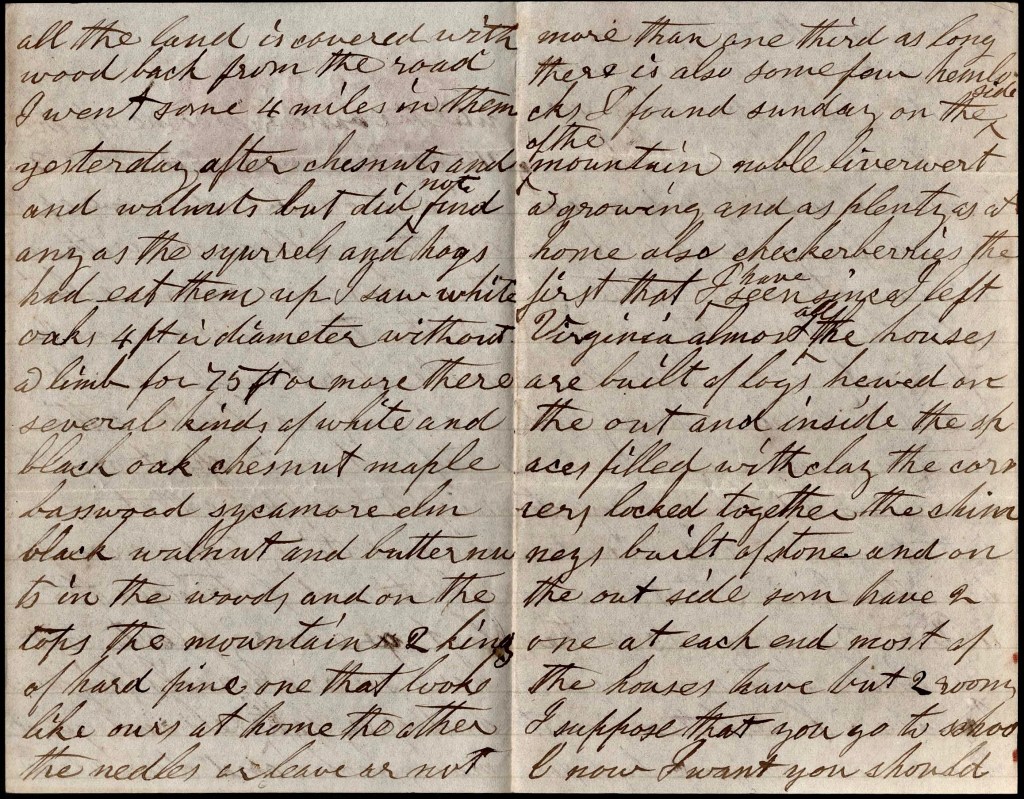 all the land is covered with
wood back from the road
I went some 4 miles in them
yesterday after chesnuts and
and walnuts but did not find
any as the squrrels and hogs
had eat them up I saw white
oaks 4 ft in diameter without
a limb for 75 ft or more there
several kinds of white and
black oak chesnut maple
basswood sycamore elm
black walnut and butternu
ts in the woods and on the
tops the mountains 2 kinds
of hard pine one that looks
like ours at home the other
the nedles or leave ar not
more than one third as long
there is also some few hemlo
cks I found sunday on the side
of the mountain noble liverwert
a growing and as plenty as at
home also checkerberries the
first that I have seen since I left
Virginia almost all the houses
are built of logs hewed on
the out and inside the sp
aces filled with clay the corn
ers locked together the chim
neys built of stone and on
the out side som have 2
one at each end most of
the houses have but 2 rooms
I suppose that you go to schoo
l now I want you should